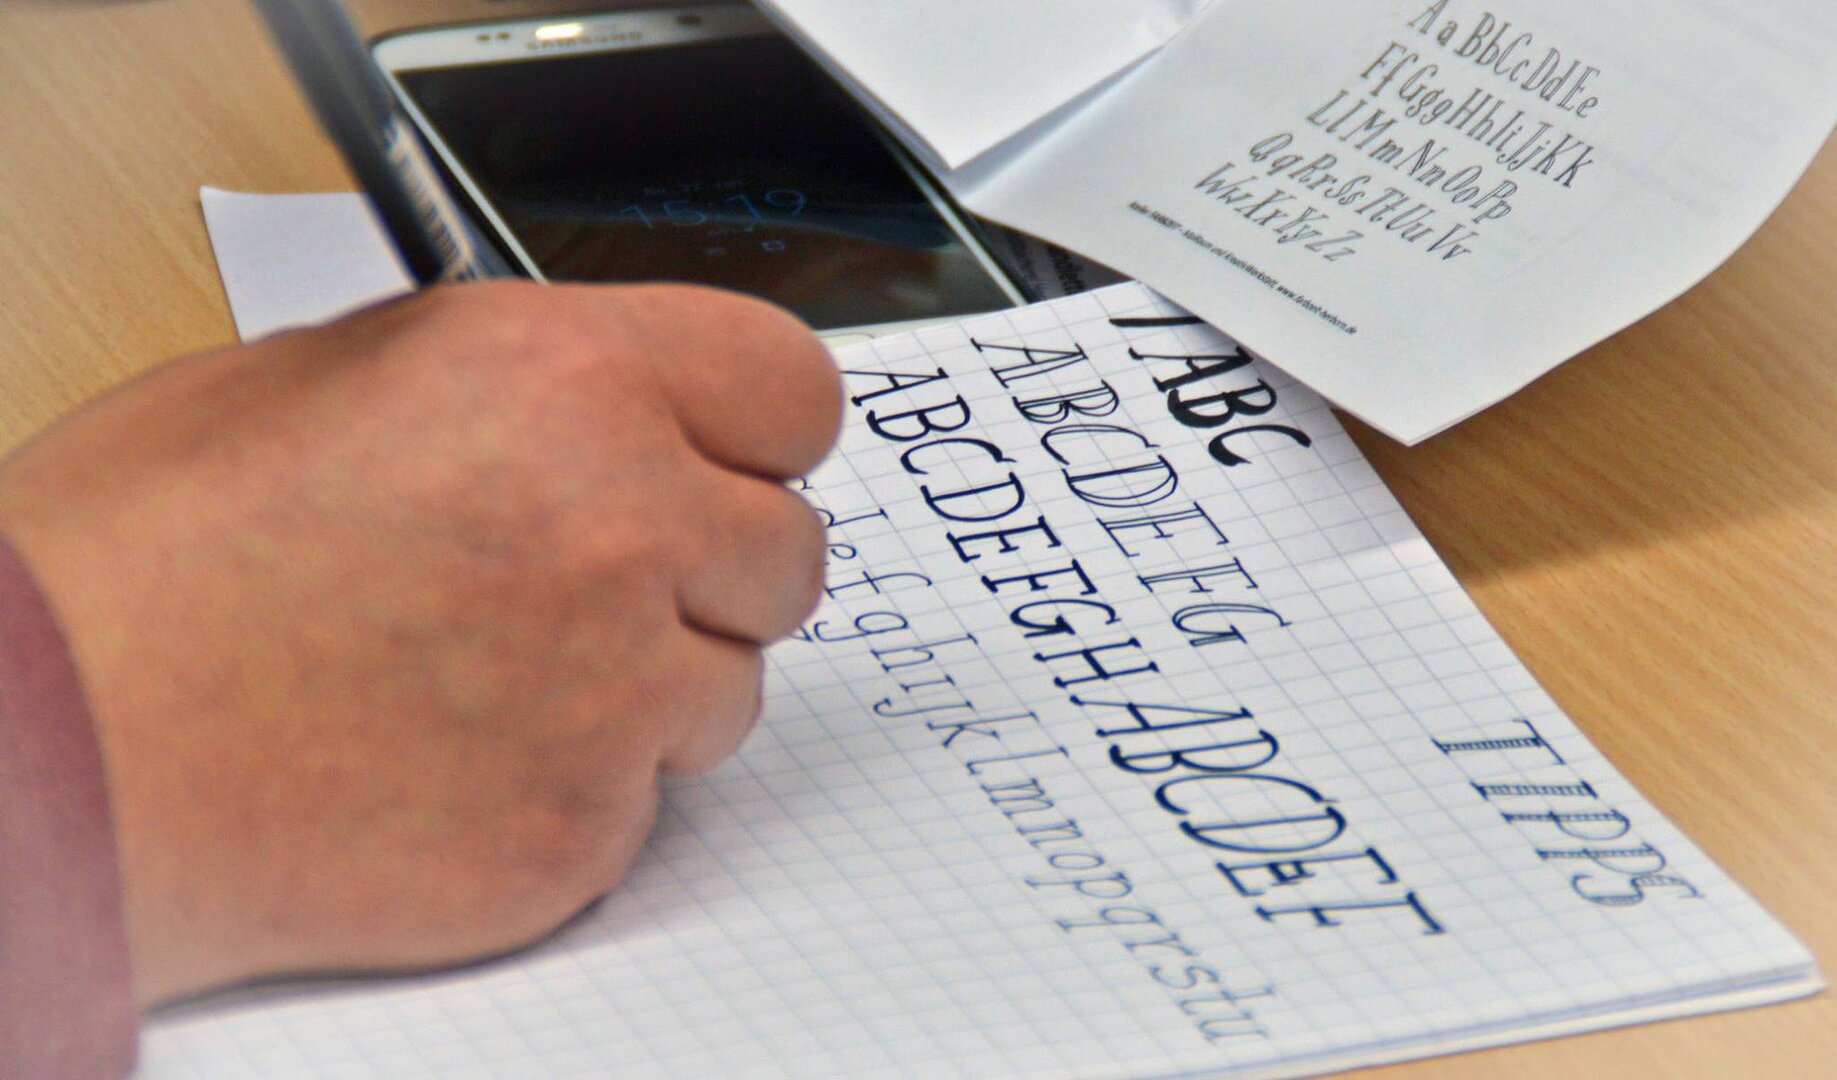 SAMSUNG
15:19
Aa Bb Cc Dd Ee
Ff Gg g Hh Ii Jj Kk
Ll Mm Nn Oo Pp
Qq Rr Ss Tt Uu Vv
Ww Xx Yy Zz
ABC
ABCDEFG
ABCDEFGHABCDEF
cdefghijklmnopqrstu
TIPPS